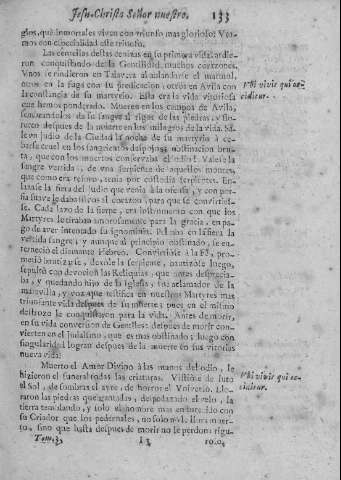 Jesu-Christo Señor nuestro. 133
glos, que inmortales viven con triunfo mas glorioso: Veamos
con especialidad este triunfo.
Las centellas destas cenizas en su primera vida ardieron
conquistando de la Gentilidad, muchos corazones.
Vnos se rindieron en Talavera al ablandarse el marmol,
otros en la fuga con su predicacion, otros en Avila con
la constancia de su martyrio. Esta era la vida vitoriosa
que hemos ponderado. Mueren en los campos de Avila,
sembrandolos de su sangre al rigor de las piedras, y
despues de la muerte en los milagros de la vida.
vn Judio de la Ciudad la noche de su martyrio a
cruel en los sangrientos despojos; obstinacion bruta,
que con los muertos conservaba el odio! Valese la
sangre vertida, de vna serpiente de aquellos montes,
que como era reyno, tenia por custodia serpientes.
a la fiera del Judio que venia a la ofensa, y con
suave le daba silvos al corazon, para que se convirtiese.
Cada lazo de la sierpe, era instrumento con que los
Martyres le tiraban amorosamente para la gracia, en pago
de aver intentado su ignominia. Peleaba en la fiera la
vertida sangre; y aunque al principio obstinado, se enterneció
el diamante Hebreo. Convirtiose a la Fé, prometió
bautizarse, dexóle la serpiente, bautizóse luego,
sepultó con devocion las Reliquias, que antes
y quedando hijo de la Iglesia, fue aclamador de la
maravilla, y voz que testifica en nuestros Martyres mas
triunfante vida despues de su muerte; pues en el mismo
destrozo le conquistaron para la vida. Antes de morir,
en su vida conversion de Gentiles: despues de morir convierten
en el Judaismo, que es mas obstinado; luego con
singularidad logran despues de la muerte en sus vitorias
nueva vida.
Muerto el Amor Divino à las manos del odio, le
hizieron el funeral todas las criaturas. Vistiose de luto
el Sol, de sombras el ayre, de horror el Vniverso, lloraron
las piedras quebrantadas, despedazado el velo, la
tierra temblando, y solo el hombre mas endurecido con
su Criador que los pedernales, no solo no le llora muerto,
sino que hasta despues de morir no le perdona
Tom. 3. I 3
Vbi vivir qui occidieur.
Vbi vivir qui occidieur.